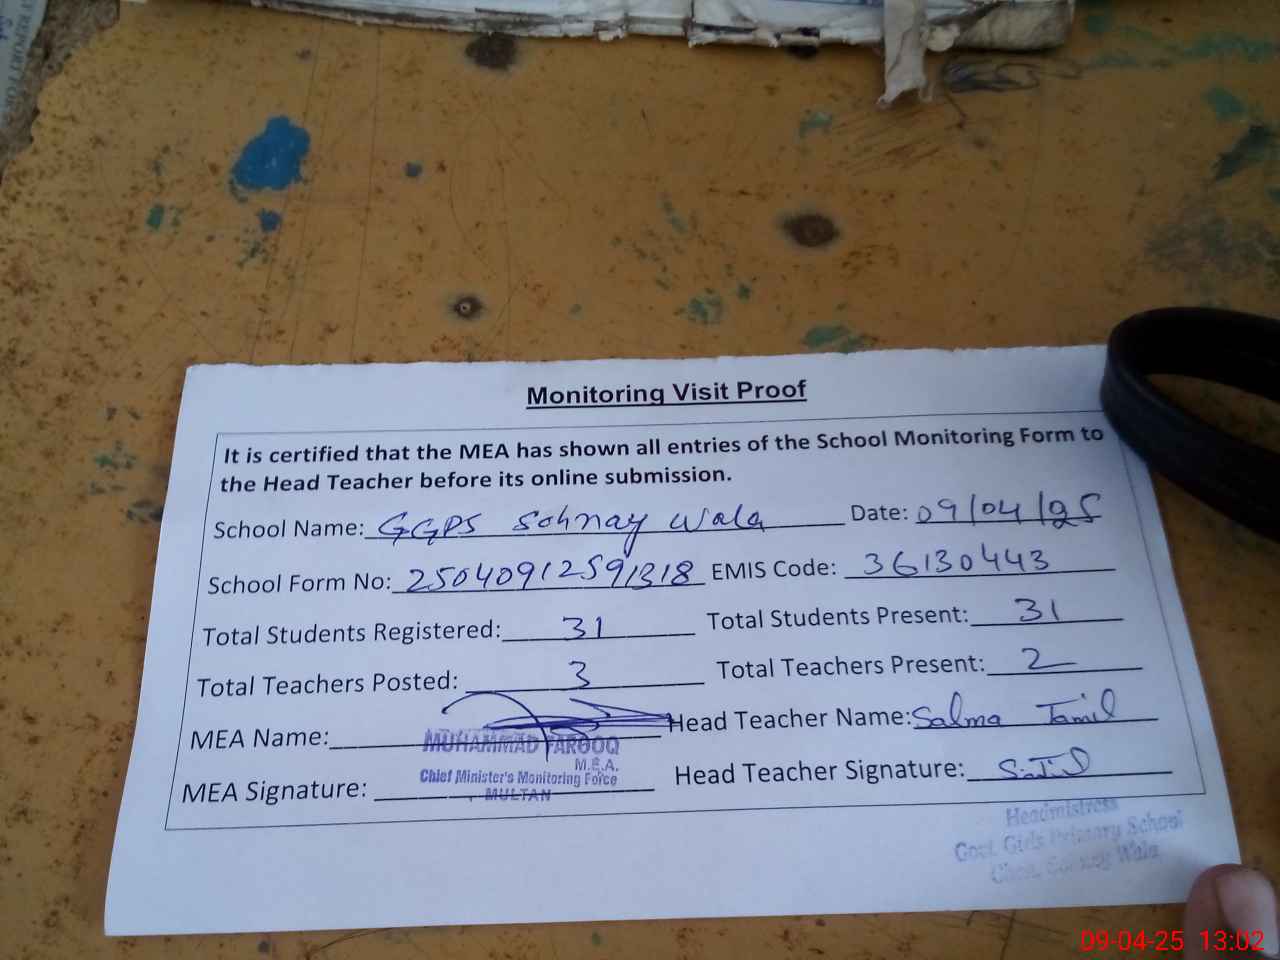 Monitoring Visit Proof
It is certified that the MEA has shown all entries of the School Monitoring Form to
the Head Teacher before its online submission.
School Name: GGPS Sohnay Wala Date: 09/04/25
School Form No: 25040912591318 EMIS Code: 36130443
Total Students Registered: 31 Total Students Present: 31
Total Teachers Posted: 3 Total Teachers Present: 2
MEA Name: Head Teacher Name: Salma Jamil
MUHAMMAD FAROOQ
M.E.A.
Chief Minister's Monitoring Force
MULTAN
MEA Signature: Head Teacher Signature:
Headmistress
Govt. Girls Primary School
Wala
09-04-25 13:02